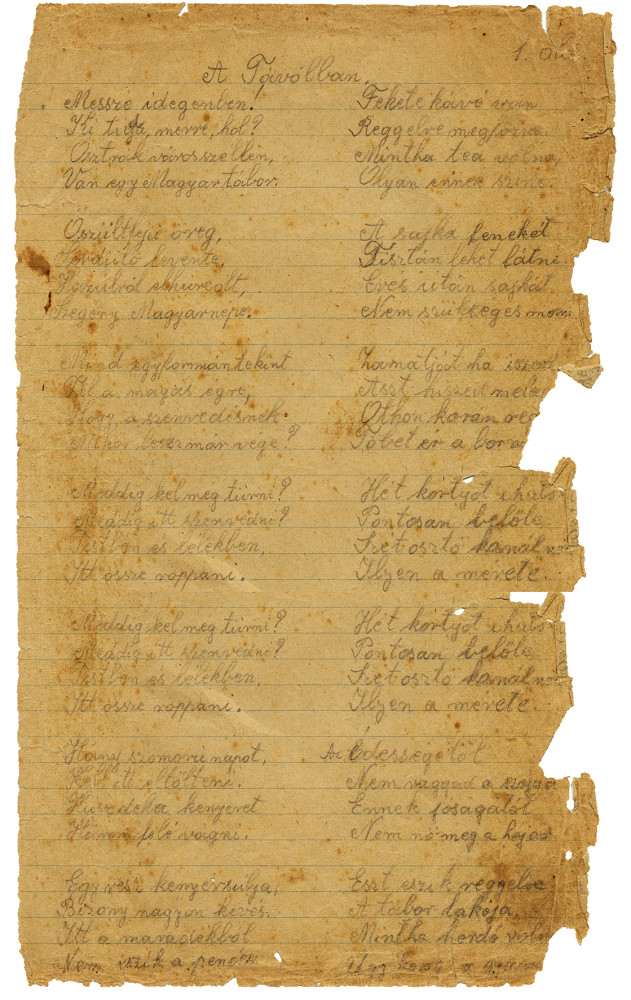 1.
A Távólban.
Messze idegenben.
Ki tudja, merre, hol?
Osztrák városszellén,
Van egy Magyar tábor.
Őszültfejü öreg,
levente,
elhurcolt,
Szegény Magyarnépe.
Mind egyformmán tekint
Fel a magas égre,
Hogy a szenvedésnek.
Mikor leszmár vége?
Meddig kel meg türni?
Meddig itt szenvedni?
Testben és lélekben,
Itt össze roppani.
Meddig kel meg türni?
Meddig itt szenvedni?
Testben és lélekben,
Itt össze roppani.
Hány szomorú napot,
Kell itt eltölteni.
Husz kenyeret
Három felé vágni.
Egy rész kenyérsúlya,
Bizony nagyon kevés.
Itt a maradékból
Nem iszik a penész
Fekete kávé van
Reggelre megfőzve.
Mintha tea volna,
Olyan ennek szine.
A sajka fenekét
Tisztán lehet látni.
Evés után sajkát.
Nem szükséges mosni
Zamatját ha
Aszt hiszed
Othon korán
Töbet ér a bor a
Hét kortyot ihato
Pontosan belőle
Szet osztó kanál
Ilyen a mérete.
Hét kortyot ihato
Pontosan belőle
Szet osztó kanál
Ilyen a mérete.
Az édességétől
Nem ragad a szája
Ennek jóságától
Nem nő meg a hája
Eszt eszik reggelre
A tábor lakója,
Mintha hordó voln
Ugy